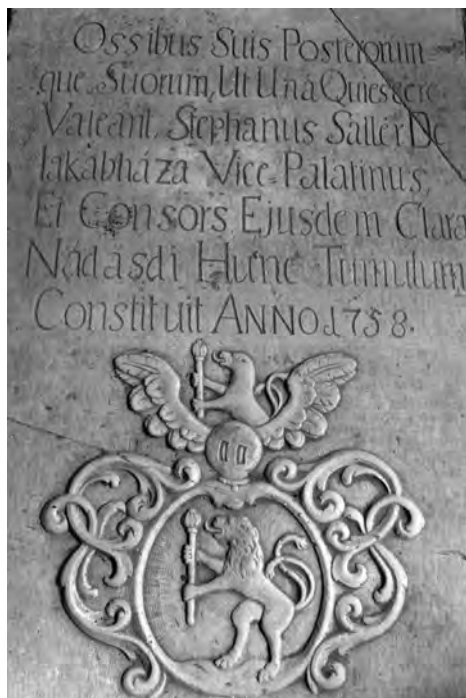 Ossibus Suis Posterorum=
que Suorum, Ut Unà Quiescere
Valeant, Stephanus Sallér De
Iakábháza Vice=Palatinus,
Et Consors Ejusdem Clara
Nádásdi Hunc Tumulum
Constituit ANNO 1758.